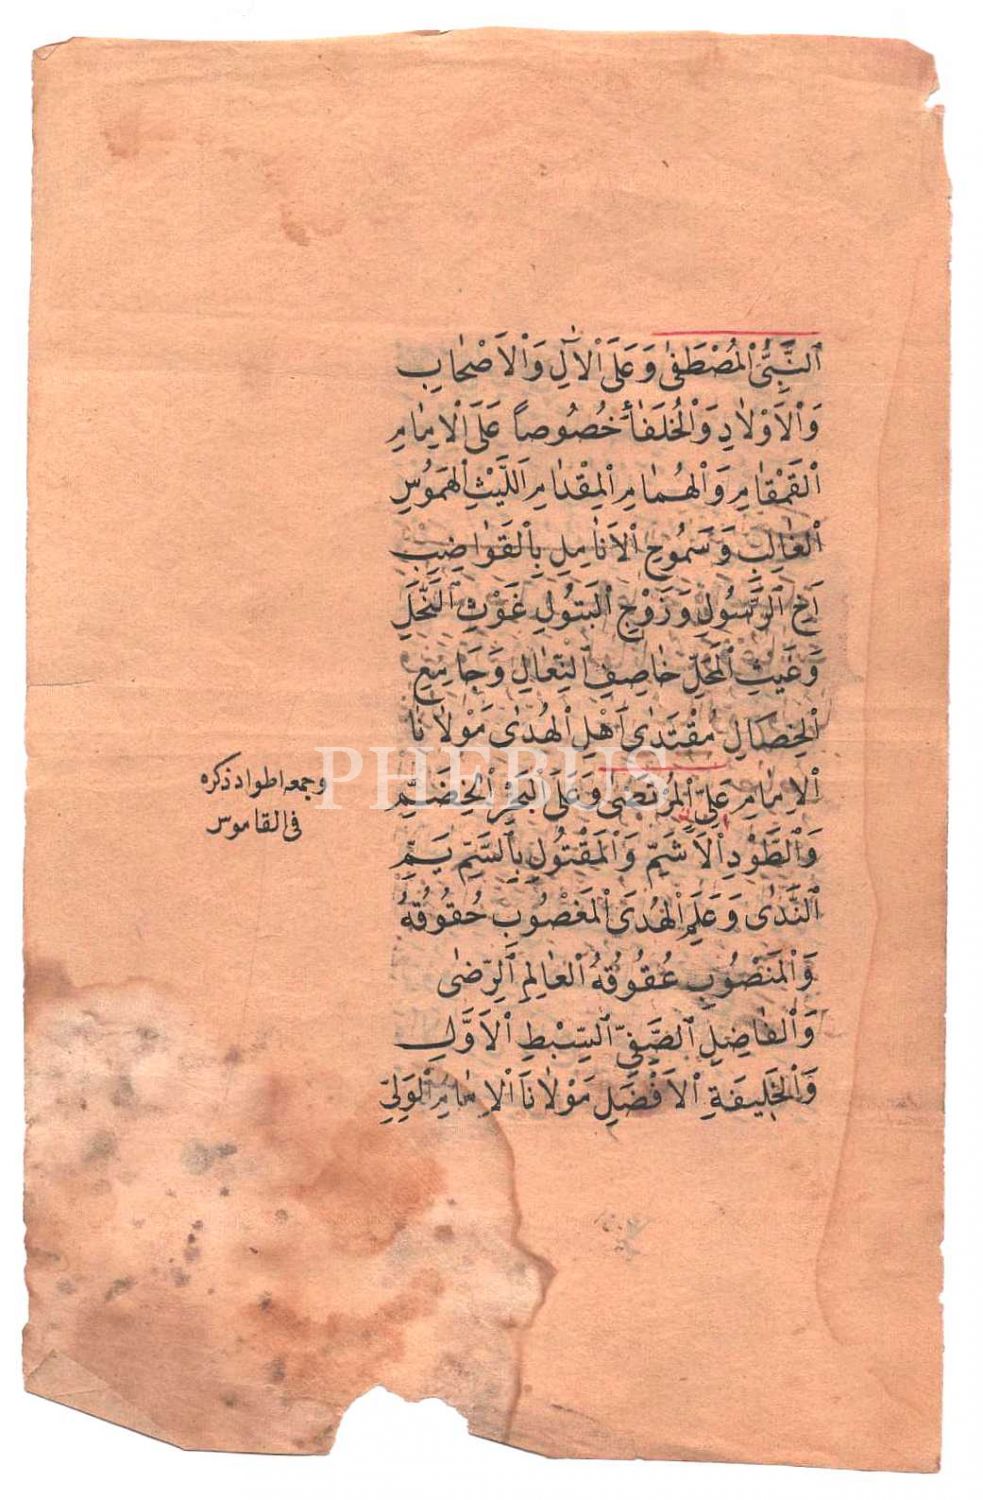 اَلنَّبِيِّ الْمُصْطَفٰى وَعَلَى الْاٰلِ وَالْاَصْحَابِ
وَالْاَوْلَادِ وَالْخُلَفَاءِ خُصُوصًا عَلَى الْاِمَامِ
الْقَمْقَامِ وَالْهُمَامِ الْمِقْدَامِ اَللَّيْثِ الْهَمُوسِ
الْغَالِبِ وَسَمُوحِ الْاَنَامِلِ بِالْقَوَاضِبِ
اَخِ الرَّسُولِ وَزَوْجِ الْبَتُولِ غَوْثِ النَّحْلِ
وَغَيْثِ الْمَحْلِ خَاصِفِ النِّعَالِ وَجَامِعِ
الْخِصَالِ مُقْتَدٰى اَهْلِ الْهُدٰى مَوْلَانَا
الْاِمَامِ عَلِيٍّ الْمُرْتَضٰى وَعَلَى الْبَحْرِ الْخِضَمِّ
وَالطَّوْدِ الْاَشَمِّ وَالْمَقْتُولِ بِالسَّمِّ يَمِّ
النَّدٰى وَعَلَمِ الْهُدٰى الْمَغْصُوبِ حُقُوقُهُ
وَالْمَنْصُوبِ عُقُوقُهُ الْعَالِمِ الرِّضٰى
وَالْفَاضِلِ الصَّفِيِّ السِّبْطِ الْاَوَّلِ
وَالْخَلِيفَةِ الْاَفْضَلِ مَوْلَانَا الْاِمَامِ الْوَلِيِّ
وجمعه اطواد ذكره
فى القاموس
PHEBUS